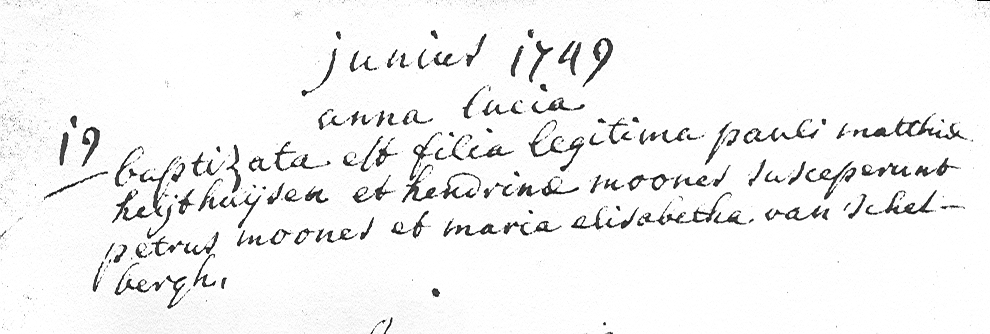 junius 1749
anna lucia
19 baptizata est filia legitima pauli matthiæ
heijthuijsen et hendrinæ moones susceperunt
petrus moones et maria elisabetha van schel-
bergh.